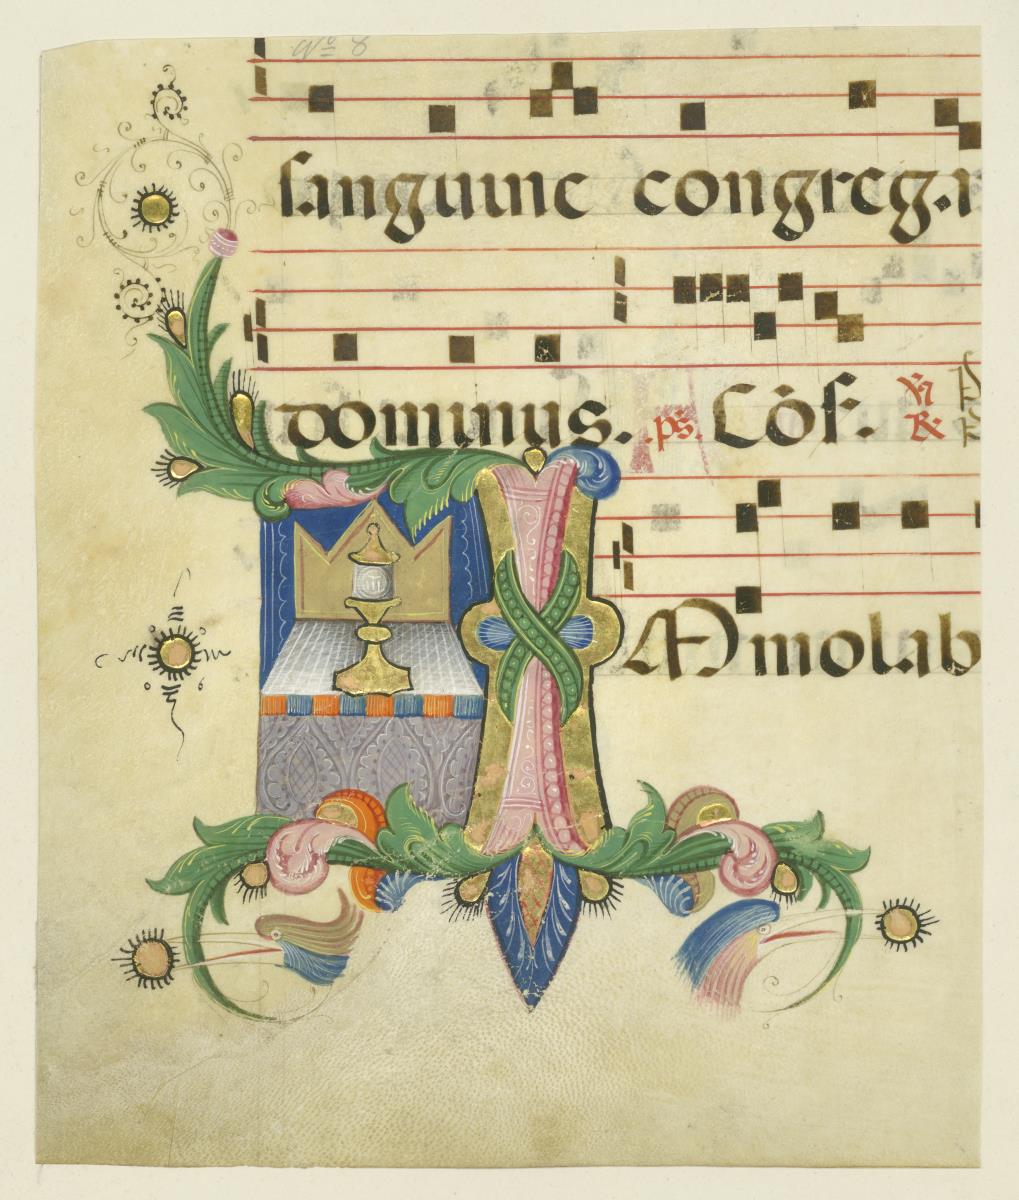 Nº 8
sanguine congrega
dominus. .ps. Cōf.
I
Ammolab